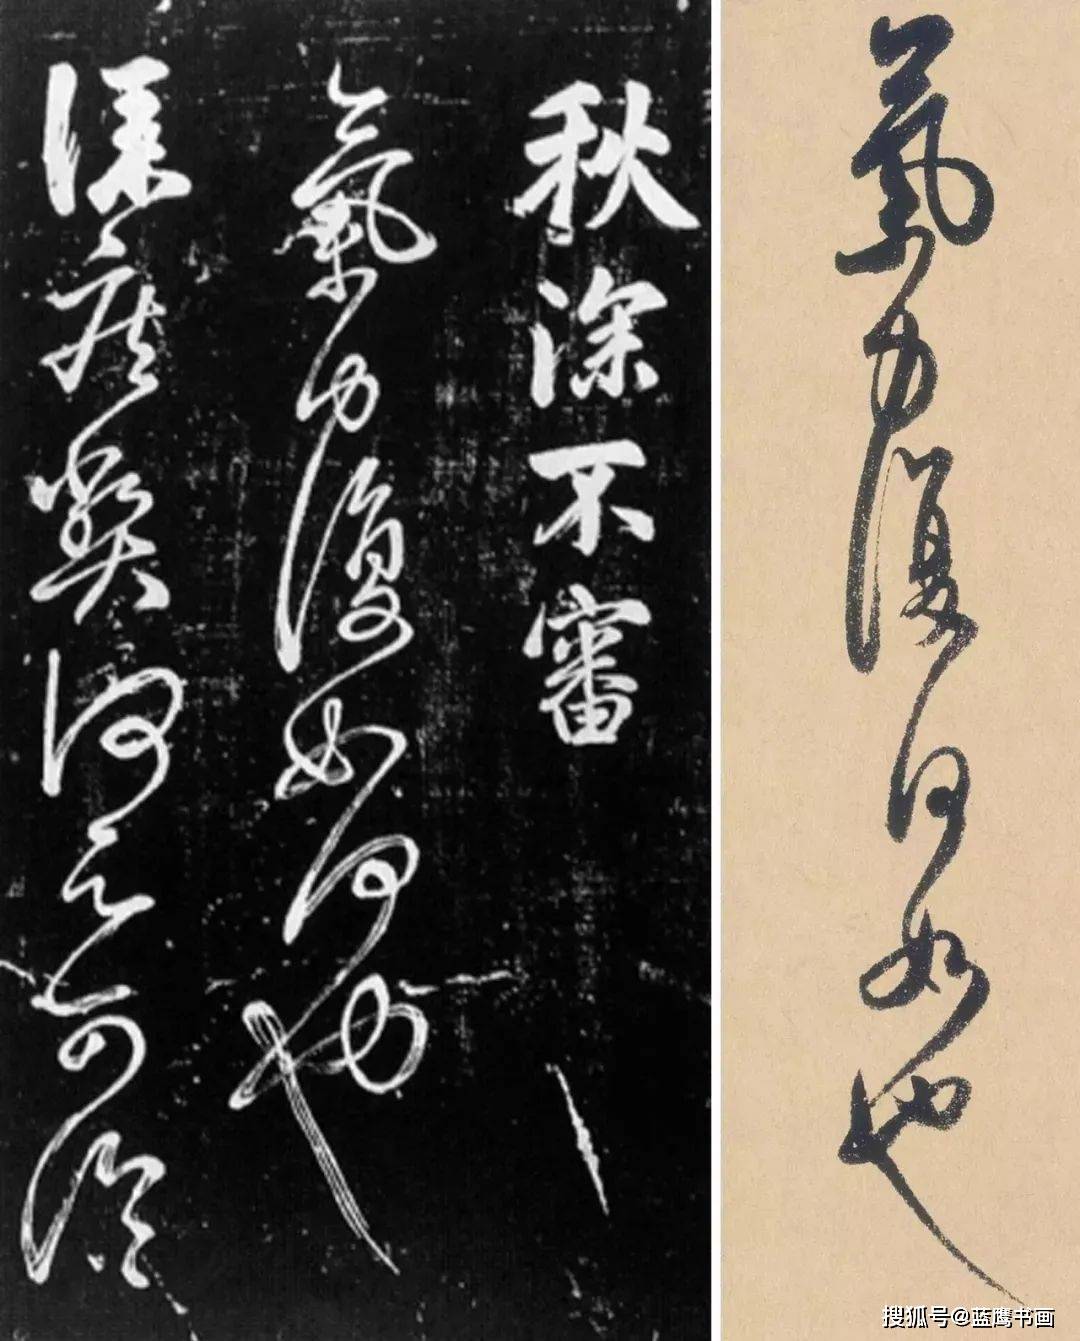 秋深不審
氣力復如何也
疾 何 可
氣力復何如也
搜狐号@蓝鹰书画